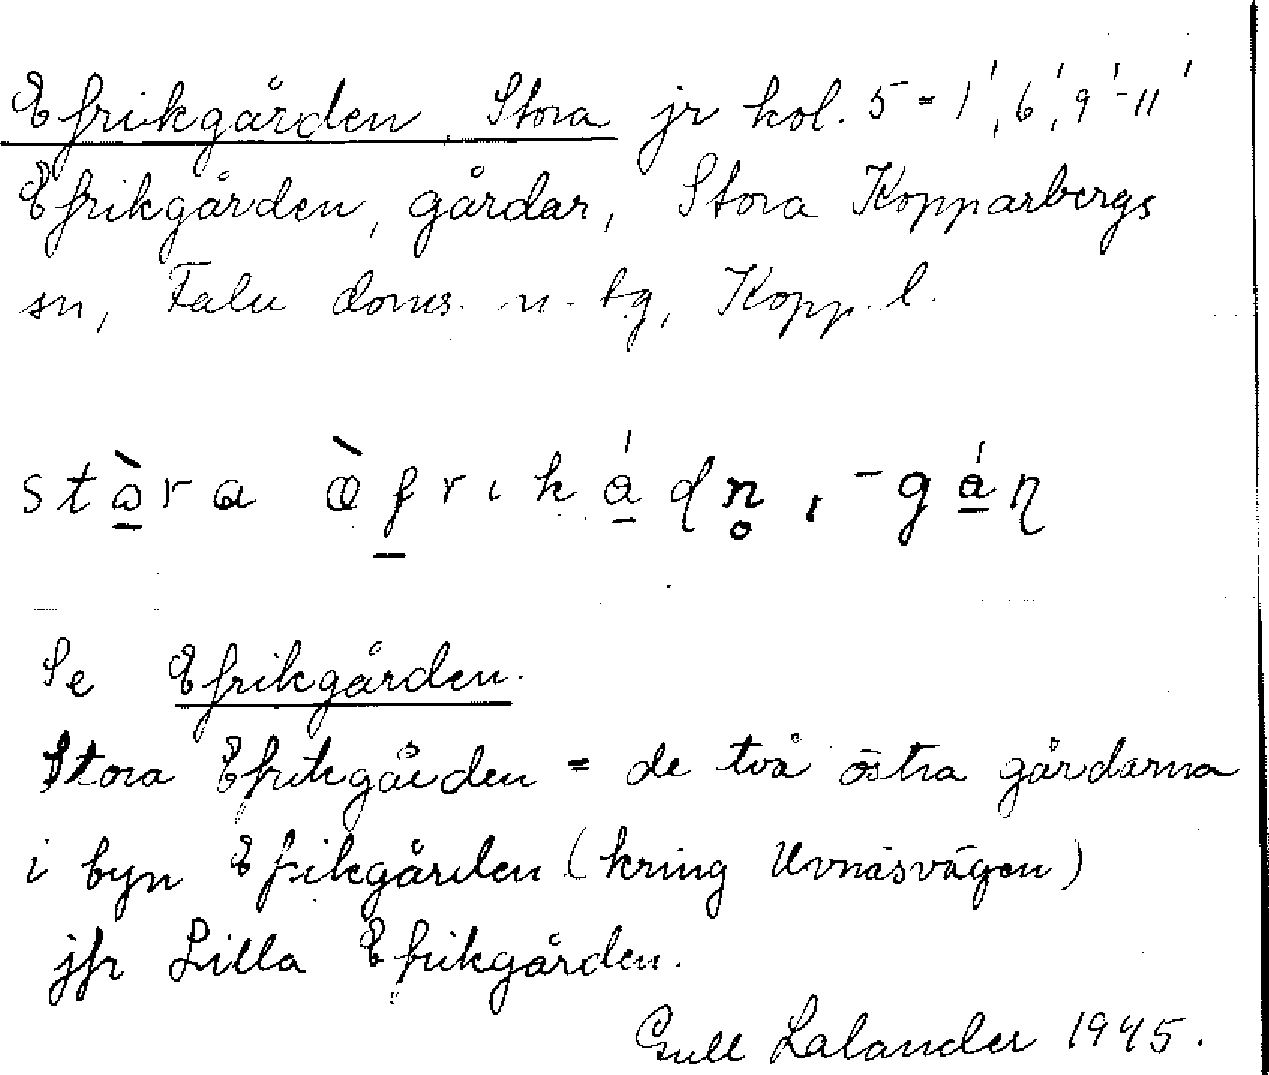 Efrikgården, Stora jr kol. 5 = 1', 6', 9'-11'
Efrikgården, gårdar, Stora Kopparbergs
sn, Falu doms. n. tg, Kopp. l.
stὰ̱ra æ̀f̱riká̱dn̥, -gá̱ɳ
Se Efrikgården.
Stora Efrikgården = de två östra gårdarna
i byn Efrikgården (kring Uvnäsvägen)
jfr Lilla Efrikgården.
Gull Lalander 1945.